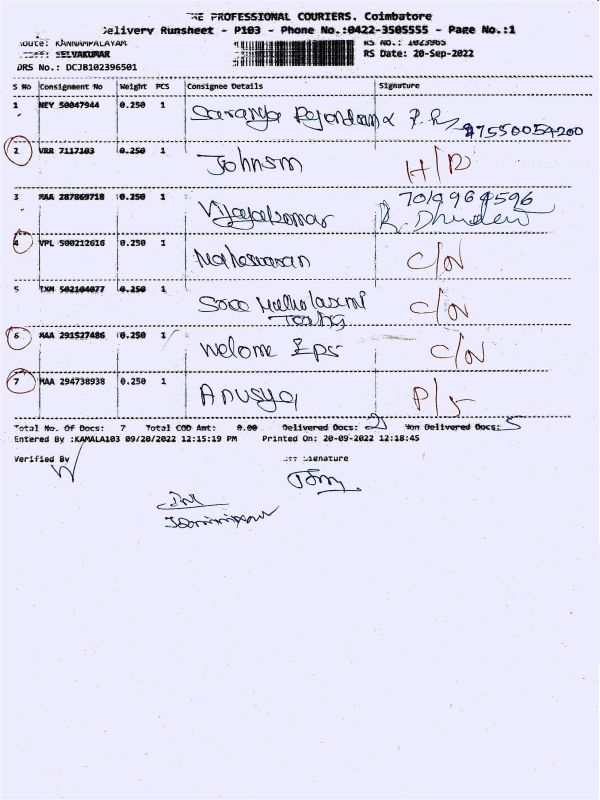 THE PROFESSIONAL COURIERS. Coimbatore
Delivery Runsheet - P103 - Phone No.:0422-3505555 - Page No.:1
Route: KANNAMPALAYAM RS No.: 1023965
Staff: SELVAKUMAR RS Date: 20-Sep-2022
DRS No.: DCJB102396501
S No Consignment No Weight PCS Consignee Details Signature
1 NEY 50047944 0.250 1 97550054200
2 VRR 7117103 0.250 1 Johnsm H/D
3 MAA 287869718 0.250 1 Vijayakumar 7019964596
4 VPL 500212616 0.250 1 Maheswaran C/N
5 TXM 502104077 0.250 1 C/N
6 MAA 291527486 0.250 1 Welome Eps C/N
7 MAA 294738938 0.250 1 Anusya P/S
Total No. Of Docs: 7 Total COD Amt: 0.00 Delivered Docs: 2 Non Delivered Docs: 5
Entered By :KAMALA103 09/20/2022 12:15:19 PM Printed On: 20-09-2022 12:18:45
Verified By Signature